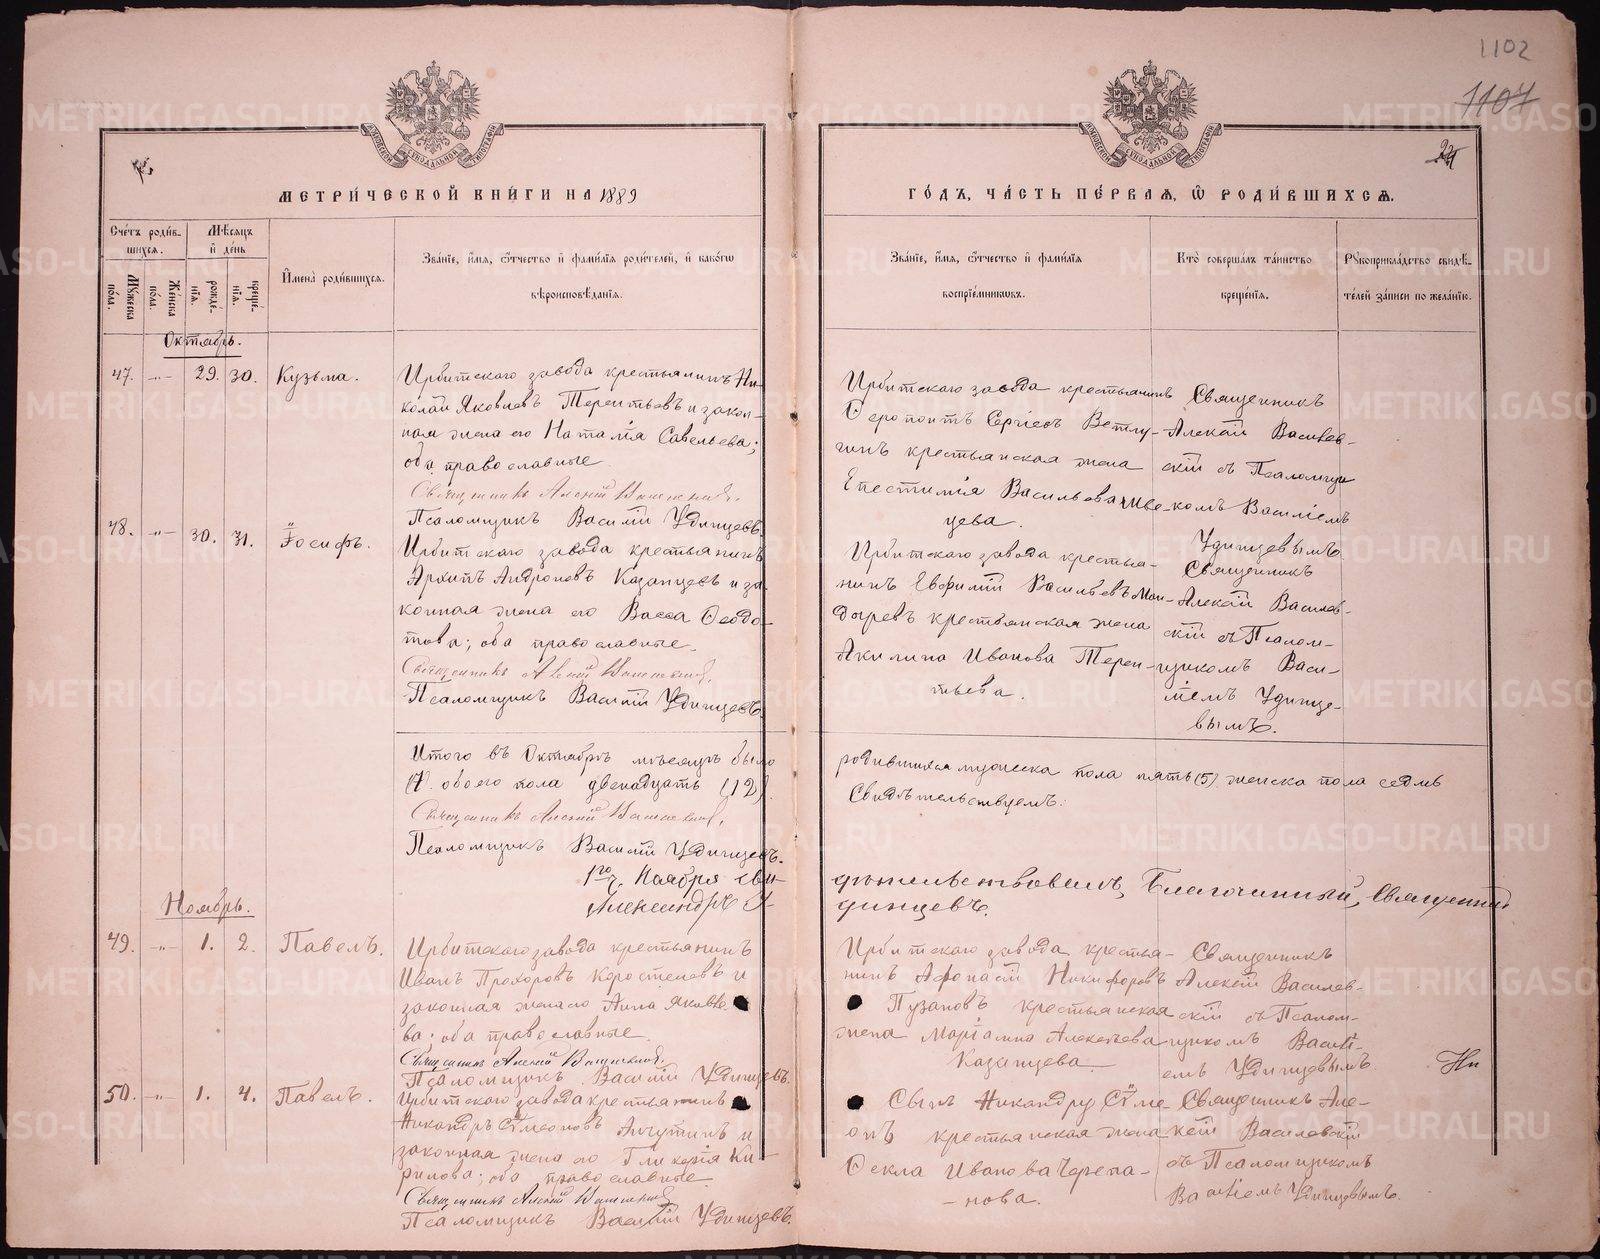 1102
1107
МЕТРИ́ЧЕСКОЙ КНИ́ГИ НА 1889
ГО́ДЪ, ЧА́СТЬ ПЕ́РВАѦ, Ѽ РОДИ́ВШИХСѦ.
Сче́тъ роди́в-
шихсѧ.
Мѣ́сѧцъ
и҆ де́нь
Мꙋ́жеска
по́ла.
Же́нска
по́ла.
рожде́-
нїѧ.
креще́-
нїѧ.
И҆мена̀ роди́вшихсѧ.
Зва́нїе, и҆́мѧ, ѻ҆́тчество и҆ фами́лїѧ роди́телей, и҆ како́гѡ
вѣроисповѣ́данїѧ.
Зва́нїе, и҆́мѧ, ѻ҆́тчество и҆ фами́лїѧ
воспрїе́мникѡвъ.
Кто̀ соверша́лъ та́инство
креще́нїѧ.
Рꙋкоприкла́дство свидѣ́-
телей за́писи по жела́нїю.
Октябрь.
47. -"- 29. 30. Кузьма.
Ирбитскаго завода крестьянинъ Ни-
колай Яковлевъ Терентьевъ и закон-
ная жена его Наталія Савельева;
оба православные
Священникъ Алексій Василевскій.
Псаломщикъ Василій Удинцевъ.
Ирбитскаго завода крестьянинъ
Ѳерапонтъ Сергіевъ Ветлу-
гинъ крестьянская жена
Епестимія Васильева Шве-
цева.
Священникъ
Алексій Василев-
скій съ Псаломщи
комъ Василіемъ
Удинцевымъ.
48. -"- 30. 31. Іосифъ.
Ирбитскаго завода крестьянинъ
Архипъ Андроновъ Казанцевъ и за-
конная жена его Васса Ѳедо-
това; оба православные.
Священникъ Алексій Василевскій.
Псаломщикъ Василій Удинцевъ.
Ирбитскаго завода крестья-
нинъ Евфимій Васильевъ Ман-
дыревъ крестьянская жена
Акилина Иванова Терен-
тьева.
Священникъ
Алексій Василев-
скій съ Псалом-
щикомъ Васи-
ліемъ Удинце-
вымъ.
Итого въ Октябрѣ мѣсяцѣ было
обоего пола двенадцать (12).
родившихся мужеска пола пять (5) женска пола седмь
Свидѣтельствуемъ:
Священникъ Алексій Василевскій.
Псаломщикъ Василій Удинцевъ.
Ноября сви-
дѣтельствовалъ, Благочинный, Священникъ
Александръ У-
динцевъ.
Ноябрь.
49. -"- 1. 2. Павелъ.
Ирбитскаго завода крестьянинъ
Иванъ Прохоровъ Коростелевъ и
законная жена его Анна Яковле
ва; оба православные.
Священникъ Алексій Василевскій.
Псаломщикъ Василій Удинцевъ.
Ирбитскаго завода крестья-
нинъ Афонасій Никифоровъ
Пузановъ крестьянская
жена Маріамна Алексѣева
Казанцева.
Священникъ
Алексій Василев-
скій съ Псалом-
щикомъ Васілі-
емъ Удинцевымъ.
50. -"- 1. 4. Павелъ.
Ирбитскаго завода крестьянинъ
Никандръ Сѵмеоновъ Анчутинъ и
законная жена его Гликерія Ки-
рилова; оба православные
Священникъ Алексій Василевскій
Псаломщикъ Василій Удинцевъ.
Сынъ Никандру Сѵме-
онъ крестьянская жена
Ѳекла Иванова Черепа-
-нова.
Священникъ Але-
ксій Василевскій
съ Псаломщикомъ
Василіемъ Удинцевымъ.
Ни